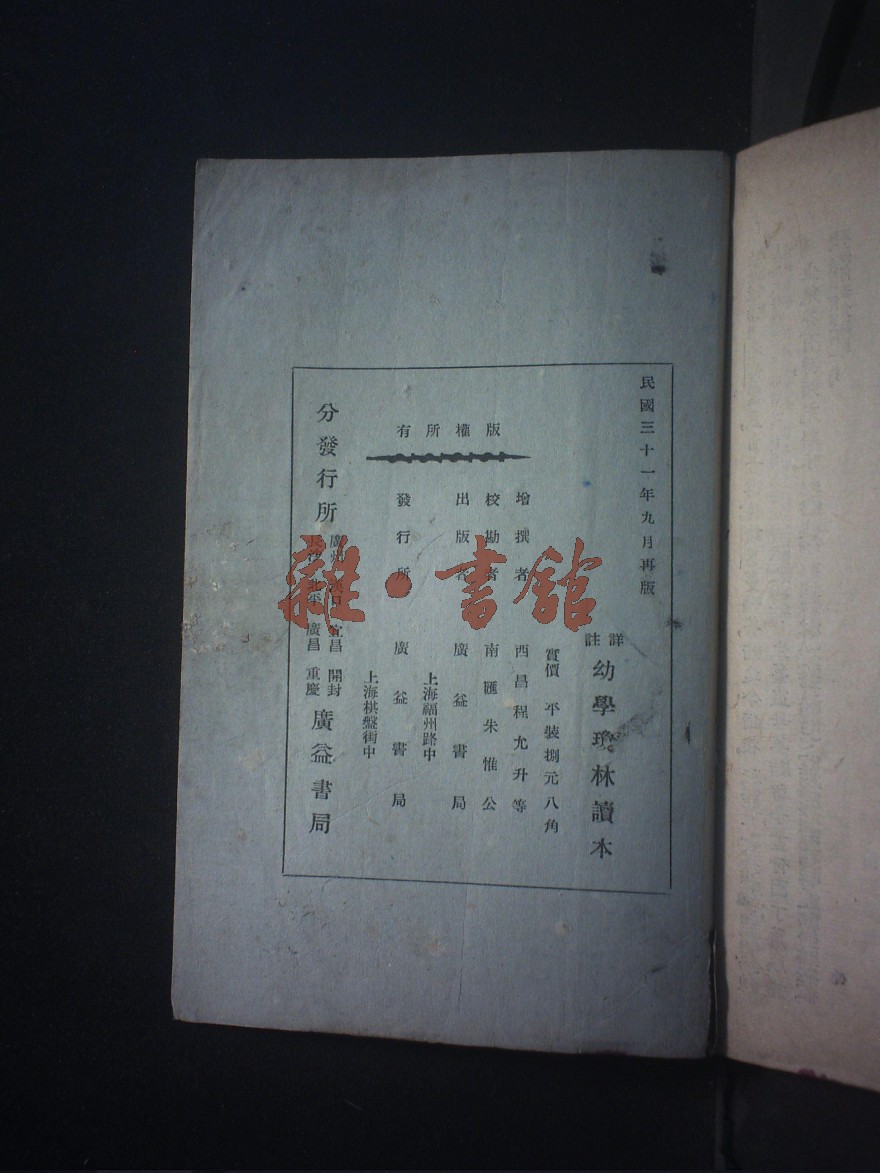 民國三十一年九月再版
詳註
幼學瓊林讀本
實價 平裝捌元八角
版權所有
增撰者 西昌程允升等
校勘者 南匯朱惟公
出版者 廣益書局
上海福州路中
發行所 廣益書局
上海棋盤街中
分發行所
廣州 漢口 宜昌 開封
長沙 北平 廣昌 重慶
廣益書局
雜·書館